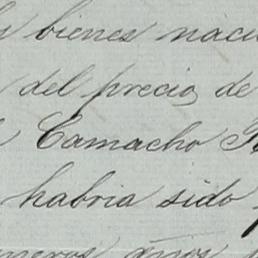 bienes naci
del precio, de
Camacho
habria sido
años